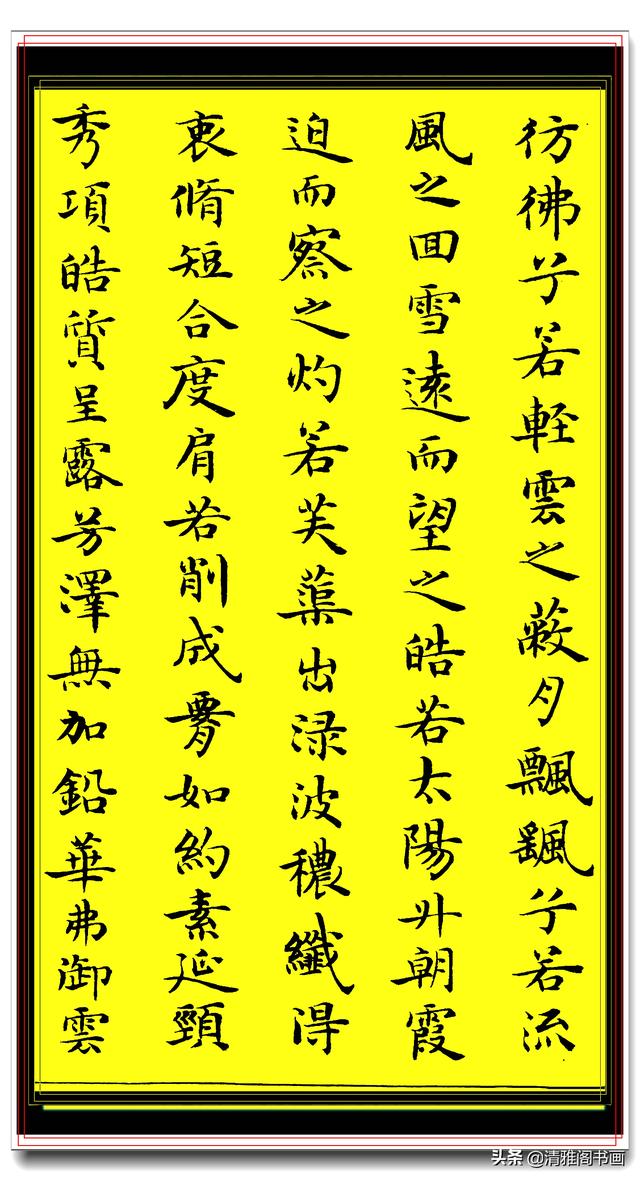 彷彿兮若輕雲之蔽月飄颻兮若流
風之回雪遠而望之皓若太陽升朝霞
迫而察之灼若芙蕖出渌波穠纖得
衷脩短合度肩若削成腰如約素延頸
秀項皓質呈露芳澤無加鉛華弗御雲
头条@清雅阁书画